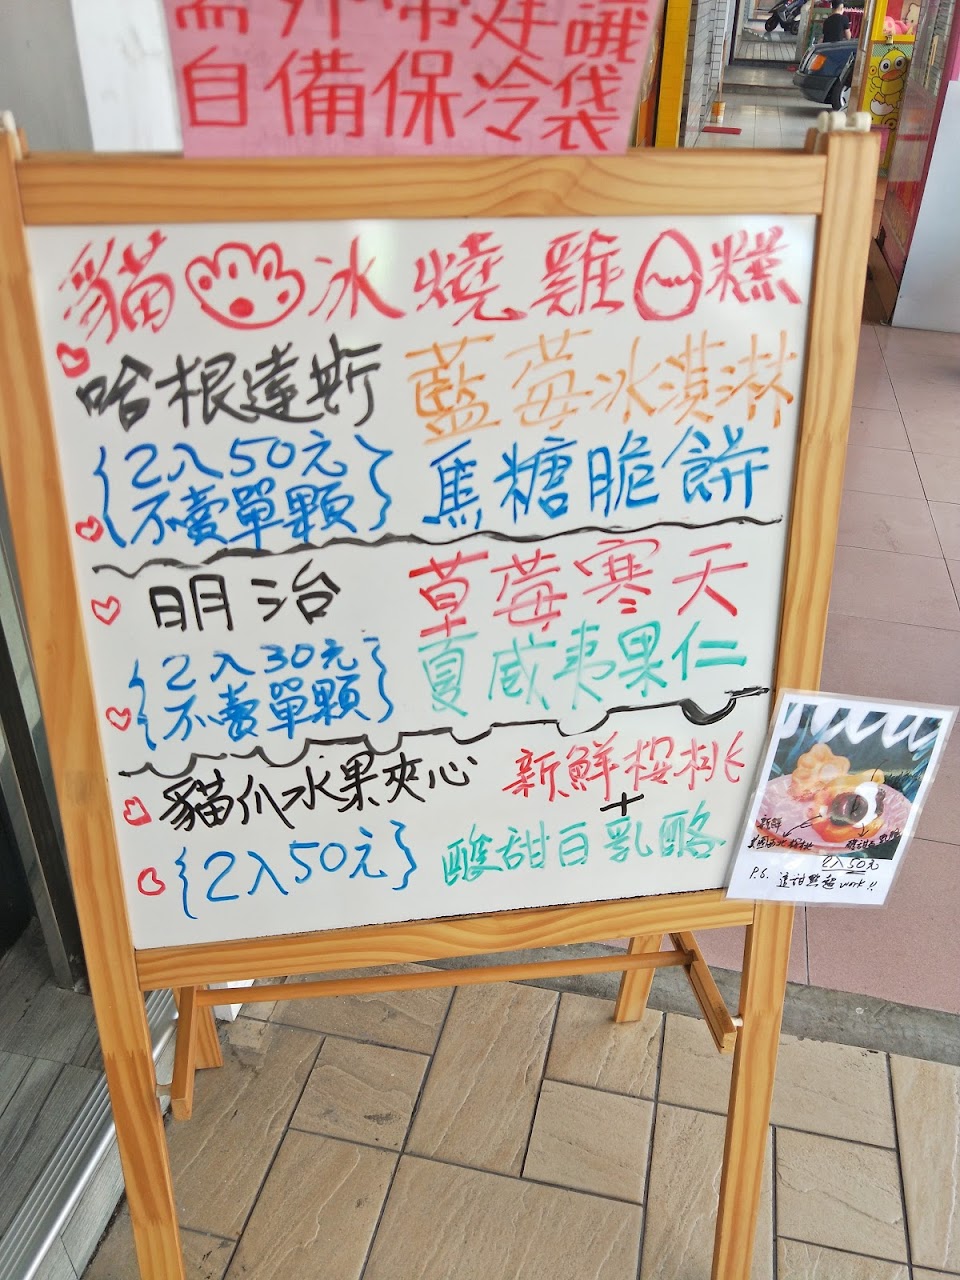 需外帶建議
自備保冷袋
貓冰燒雞糕
哈根達斯 藍莓冰淇淋
{2入50元 不賣單顆} 焦糖脆餅
明治 草莓寒天
{2入30元 不賣單顆} 夏威夷果仁
貓爪冰果夾心 新鮮桜桃
+
{2入50元} 酸甜白乳酪
新鮮
2入50元
P.S. 這甜點超work!!